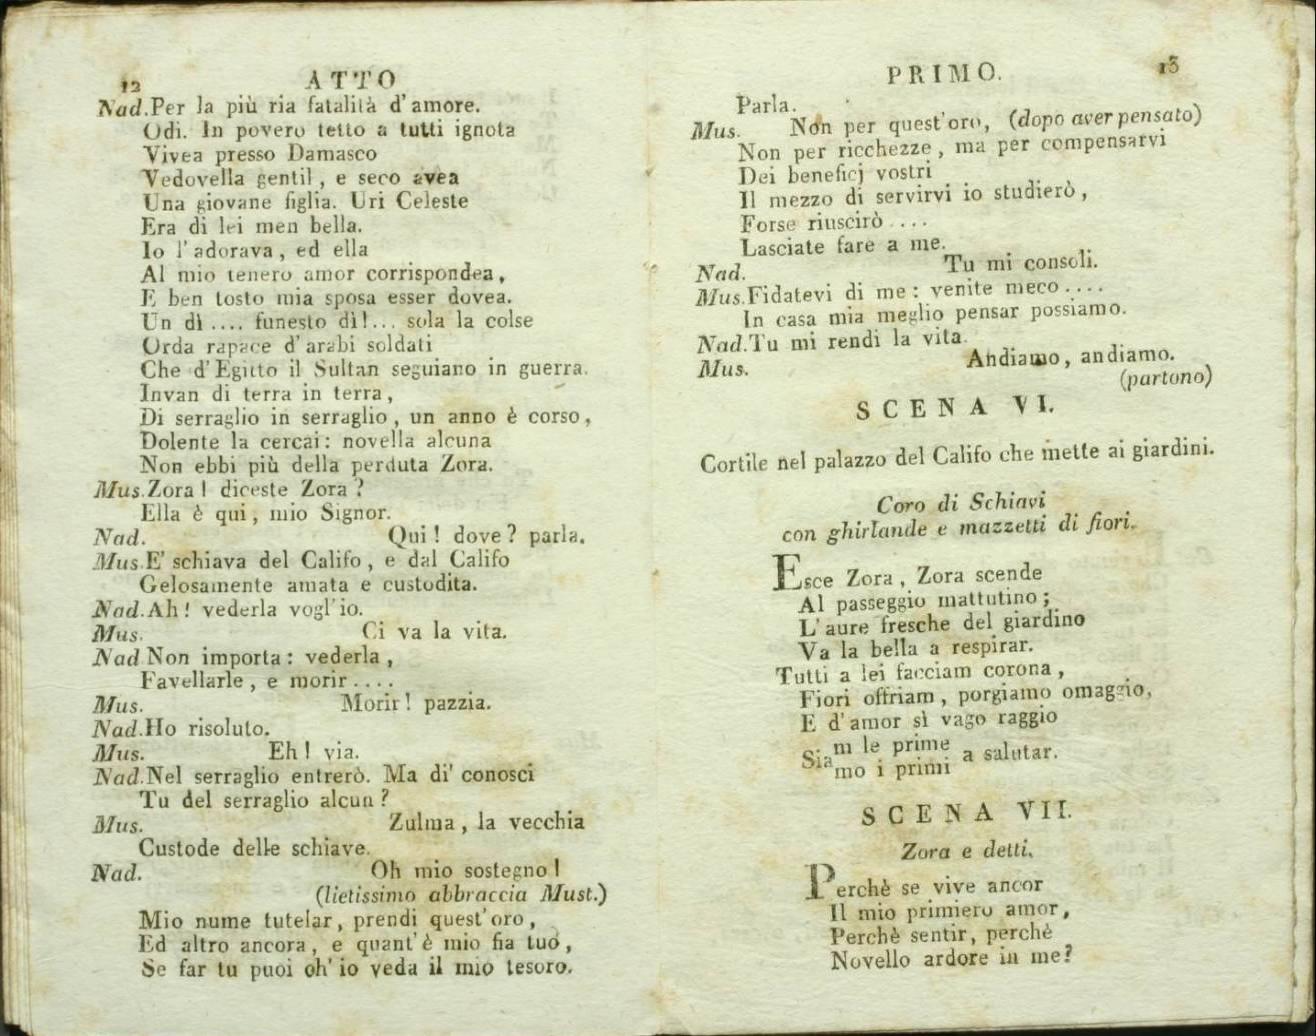 12
ATTO
Nad. Per la più ria fatalità d'amore.
Odi. In povero tetto a tutti ignota
Vivea presso Damasco
Vedovella gentil, e seco avea
Una giovane figlia. Uri Celeste
Era di lei men bella.
Io l'adorava, ed ella
Al mio tenero amor corrispondea,
E ben tosto mia sposa esser dovea.
Un dì .... funesto dì!... sola la colse
Orda rapace d'arabi soldati
Che d'Egitto il Sultan seguiano in guerra.
Invan di terra in terra,
Di serraglio in serraglio, un anno è corso,
Dolente la cercai: novella alcuna
Non ebbi più della perduta Zora.
Mus. Zora! diceste Zora?
Ella è qui, mio Signor.
Nad. Qui! dove? parla.
Mus. E' schiava del Califo, e dal Califo
Gelosamente amata e custodita.
Nad. Ah! vederla vogl'io.
Mus. Ci va la vita.
Nad Non importa: vederla,
Favellarle, e morir ....
Mus. Morir! pazzia.
Nad. Ho risoluto.
Mus. Eh! via.
Nad. Nel serraglio entrerò. Ma di' conosci
Tu del serraglio alcun?
Mus. Zulma, la vecchia
Custode delle schiave.
Nad. Oh mio sostegno!
(lietissimo abbraccia Must.)
Mio nume tutelar, prendi quest'oro,
Ed altro ancora, e quant'è mio fia tuo,
Se far tu puoi ch'io veda il mio tesoro.
PRIMO.
13
Parla.
Mus. Non per quest'oro, (dopo aver pensato)
Non per ricchezze, ma per compensarvi
Dei beneficj vostri
Il mezzo di servirvi io studierò,
Forse riuscirò ....
Lasciate fare a me.
Nad. Tu mi consoli.
Mus. Fidatevi di me: venite meco ....
In casa mia meglio pensar possiamo.
Nad. Tu mi rendi la vita.
Mus. Andiamo, andiamo.
(partono)
SCENA VI.
Cortile nel palazzo del Califo che mette ai giardini.
Coro di Schiavi
con ghirlande e mazzetti di fiori.
Esce Zora, Zora scende
Al passeggio mattutino;
L'aure fresche del giardino
Va la bella a respirar.
Tutti a lei facciam corona,
Fiori offriam, porgiamo omaggio,
E d'amor sì vago raggio
Siam le prime a salutar.
mo i primi
SCENA VII.
Zora e detti.
Perchè se vive ancor
Il mio primiero amor,
Perchè sentir, perchè
Novello ardore in me?